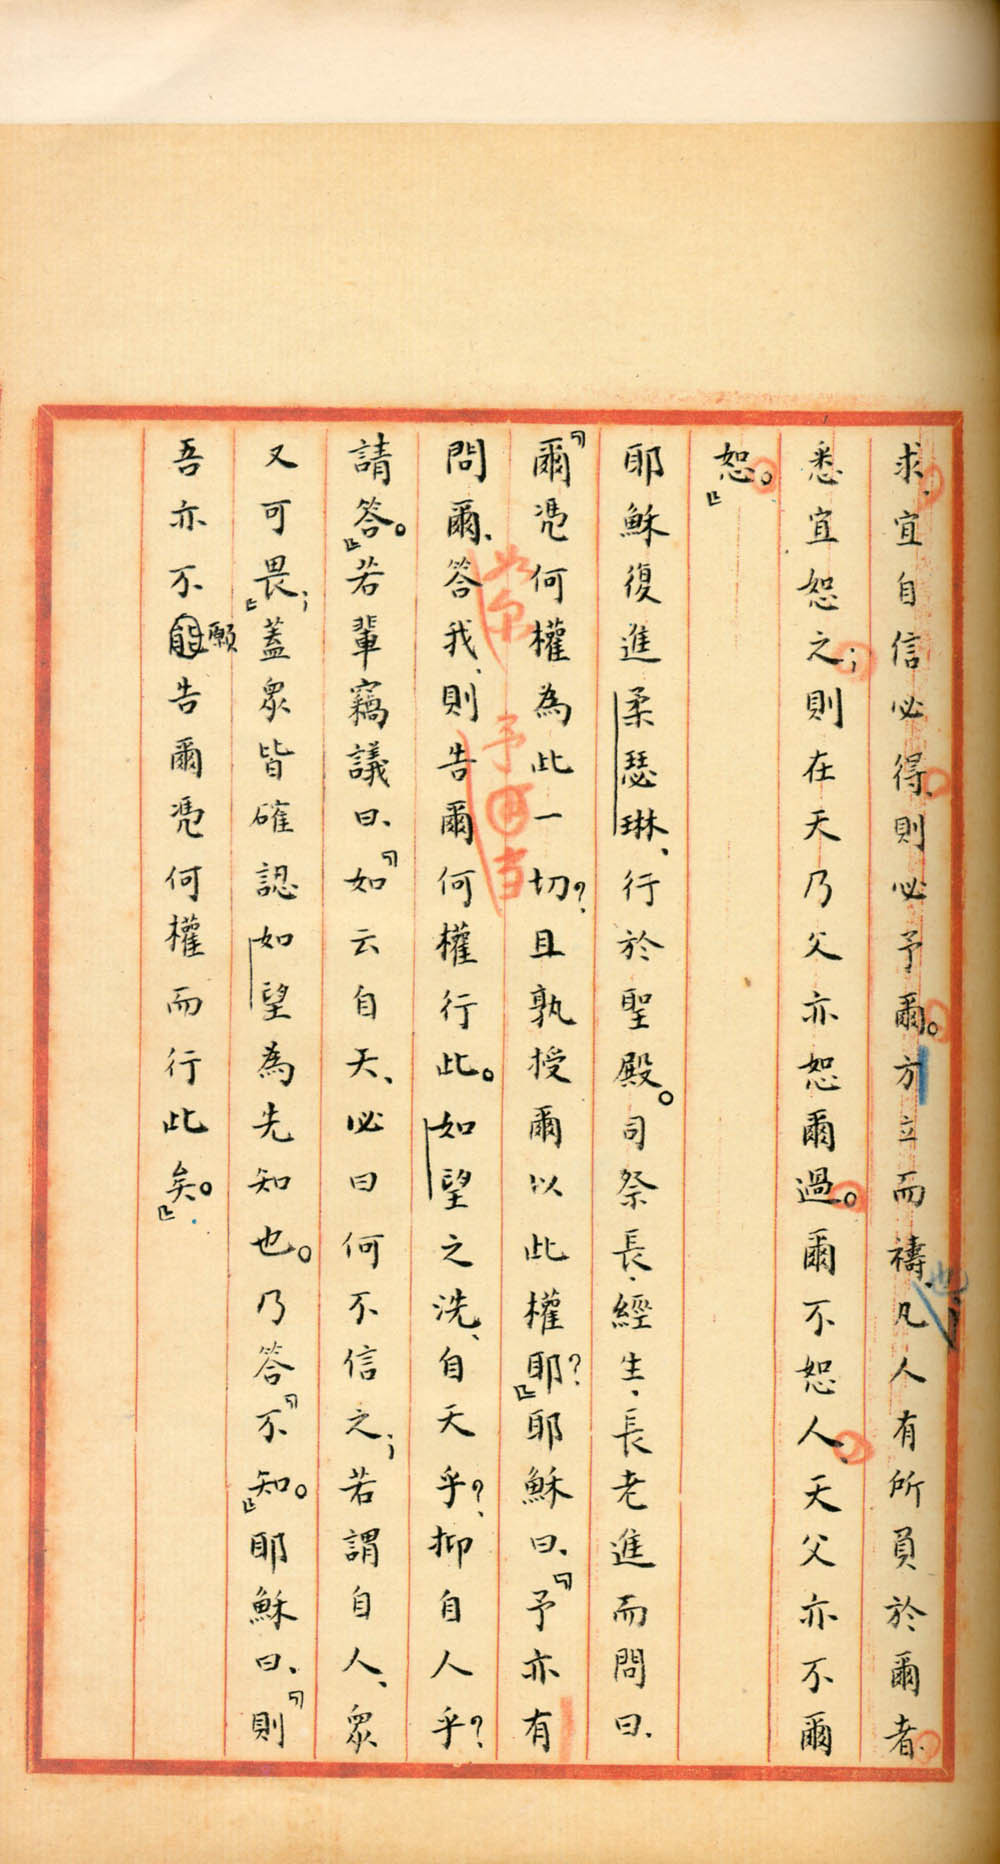 求、宜自信必得、則必予爾。方立而禱、凡人有所負於爾者、
也、
悉宜恕之；則在天乃父亦恕爾過。爾不恕人、天父亦不爾
恕。』
耶穌復進柔瑟琳、行於聖殿。司祭長、經生、長老進而問曰、
『爾憑何權為此一切？且孰授爾以此權耶？』耶穌曰、『予亦有
問爾、答我、則告爾何權行此。如望之洗、自天乎？抑自人乎？
請答。』若輩竊議曰、『如云自天、必曰何不信之；若謂自人、眾
又可畏；』蓋眾皆確認如望為先知也。乃答『不知。』耶穌曰、『則
吾亦不能告爾憑何權而行此矣。』
願